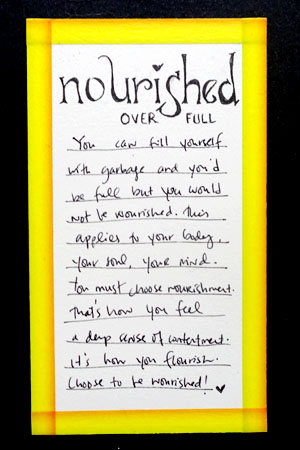 nourished
OVER FULL
You can fill yourself
with garbage and you'd
be full but you would
not be nourished. This
applies to your body,
your soul, your mind.
You must choose nourishment.
That's how you feel
a deep sense of contentment.
It's how you flourish.
Choose to be nourished!